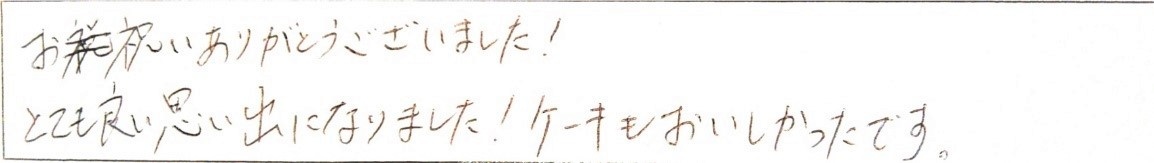 お祝いありがとうございました！
とても良い思い出になりました！ケーキもおいしかったです。